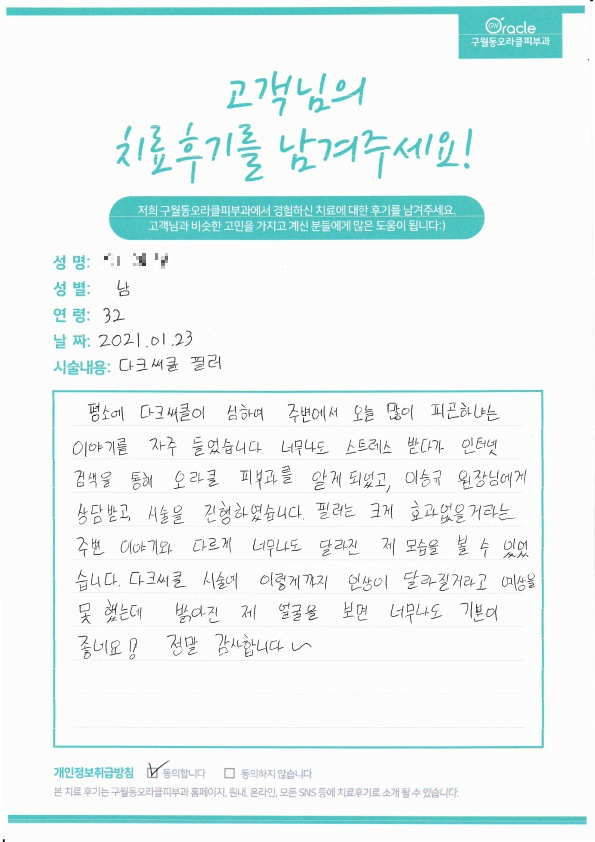 GN Oracle
구월동오라클피부과
고객님의
치료후기를 남겨주세요!
저희 구월동오라클피부과에서 경험하신 치료에 대한 후기를 남겨주세요.
고객님과 비슷한 고민을 가지고 계신 분들에게 많은 도움이 됩니다:)
성 명:
성 별: 남
연 령: 32
날 짜: 2021.01.23
시술내용: 다크써클 필러
평소에 다크써클이 심하여 주변에서 오늘 많이 피곤하냐는
이야기를 자주 들었습니다. 너무나도 스트레스 받다가 인터넷
검색을 통해 오라클 피부과를 알게 되었고, 이승규 원장님에게
상담받고 시술을 진행하였습니다. 필러는 크게 효과없을거라는
주변 이야기와 다르게 너무나도 달라진 제 모습을 볼 수 있었
습니다. 다크써클 시술에 이렇게까지 인상이 달라질거라고 예상을
못 했는데 밝아진 제 얼굴을 보면 너무나도 기분이
좋네요!! 전말 감사합니다~
개인정보취급방침 ☑ 동의합니다 ☐ 동의하지 않습니다
본 치료 후기는 구월동오라클피부과 홈페이지, 원내, 온라인, 모든 SNS 등에 치료후기로 소개 될 수 있습니다.